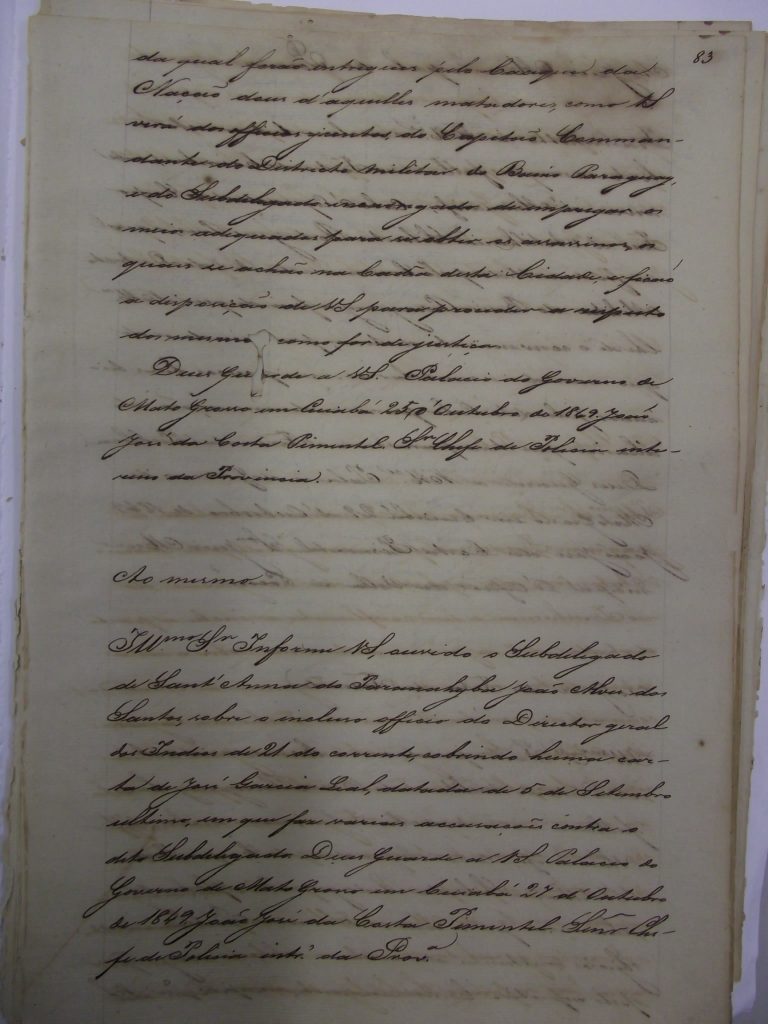 83
da qual forão entregues pelo Cacique da
Nação dous d'aquelles matadores, como VS
verá dos officios juntos, do Capitão Comman-
dante do Districto militar do Baixo Paraguay,
e do Subdelegado encarregado de empregar os
meios adequados para se obter os assassinos, os
quaes se achão na Cadêa desta Cidade, e ficão
a disposição de VS para proceder a respeito
dos mesmos como for de justiça.
Deus Guarde a VS. Palacio do Governo de
Mato Grosso em Cuiabá 25 d'Outubro de 1849. João
José da Costa Pimentel. Sr. Chefe de Policia inte-
rino da Provincia.
Ao mesmo
Illmo. Sr. Informe VS, ouvido o Subdelegado
de Sant'Anna do Paranahyba João Alves dos
Santos, sobre o incluso officio do Director geral
dos Indios de 21 do corrente, cobrindo huma car-
ta de José Garcia Leal, datada de 5 de Setembro
ultimo, em que faz varias accusações contra o
dito Subdelegado. Deus Guarde a VS. Palacio do
Governo de Mato Grosso em Cuiabá 27 d'Outubro
de 1849. João José da Costa Pimentel. Senr. Che-
fe de Policia intr.º da Prov.ª